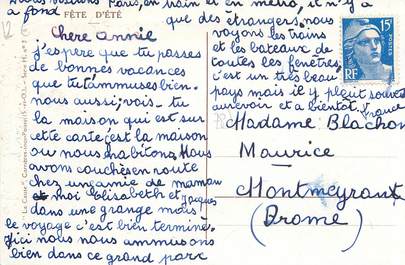 Paris, en train et en métro, il n'y a
à fond
que des étrangers. nous
FÊTE D'ÉTÉ
voyons les trains
Chere Annie
et les bateaux de
j'espere que tu passes
toutes les fenêtres,
de bonnes vacances
c'est un tres beau
que tut'ammuses bien.
pays mais il y pleut souvent
nous aussi, vois-tu
aurevoir et a bientot,
France
la maison qui est sur
cette carte, c'est la maison
Madame Blachon
ou nous habitons. Nous
Maurice
avons couchés en route
chez une amie de maman
Montmeyrant
et moi Elisabeth et Jacques
dans une grange mais
(Drome)
le voyage c'est bien terminé.
Ici nous nous ammusons
bien dans ce grand parc
15F
POSTES
RF